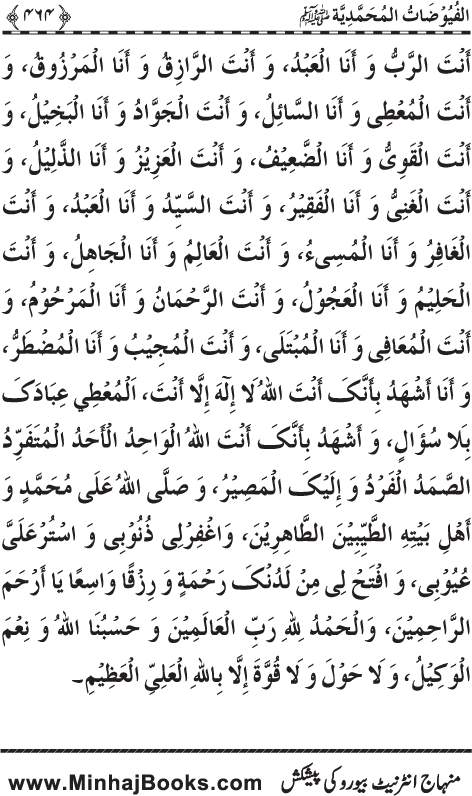 الفُيُوْضَاتُ المُحَمَّدِيَّة ﷺ ﴿۴۶۴﴾
أَنْتَ الرَّبُّ وَ أَنَا الْعَبْدُ، وَ أَنْتَ الرَّازِقُ وَ أَنَا الْمَرْزُوقُ، وَ
أَنْتَ الْمُعْطِی وَ أَنَا السَّائِلُ، وَ أَنْتَ الْجَوَّادُ وَ أَنَا الْبَخِيْلُ، وَ
أَنْتَ الْقَوِیُّ وَ أَنَا الضَّعِيْفُ، وَ أَنْتَ الْعَزِيْزُ وَ أَنَا الذَّلِيْلُ، وَ
أَنْتَ الْغَنِیُّ وَ أَنَا الْفَقِيْرُ، وَ أَنْتَ السَّيِّدُ وَ أَنَا الْعَبْدُ، وَ أَنْتَ
الْغَافِرُ وَ أَنَا الْمُسِیءُ، وَ أَنْتَ الْعَالِمُ وَ أَنَا الْجَاهِلُ، وَ أَنْتَ
الْحَلِيْمُ وَ أَنَا الْعَجُوْلُ، وَ أَنْتَ الرَّحْمَانُ وَ أَنَا الْمَرْحُوْمُ، وَ
أَنْتَ الْمُعَافِی وَ أَنَا الْمُبْتَلَی، وَ أَنْتَ الْمُجِيْبُ وَ أَنَا الْمُضْطَرُّ،
وَ أَنَا أَشْهَدُ بِأَنَّکَ أَنْتَ اللهُ لَا إِلٰهَ إِلَّا أَنْتَ، اَلْمُعْطِي عِبَادَکَ
بِلَا سُؤَالٍ، وَ أَشْهَدُ بِأَنَّکَ أَنْتَ اللهُ الْوَاحِدُ الْأَحَدُ الْمُتَفَرِّدُ
الصَّمَدُ الْفَرْدُ وَ إِلَيْکَ الْمَصِيْرُ، وَ صَلَّی اللهُ عَلَی مُحَمَّدٍ وَ
أَهْلِ بَيْتِهِ الطَّيِّبِيْنَ الطَّاهِرِيْنَ، وَاغْفِرْلِی ذُنُوْبِی وَ اسْتُرْ عَلَیَّ
عُيُوْبِی، وَ افْتَحْ لِی مِنْ لَدُنْکَ رَحْمَةٍ وَ رِزْقًا وَاسِعًا يَا أَرْحَمَ
الرَّاحِمِيْنَ، وَالْحَمْدُ لِلهِ رَبِّ الْعَالَمِيْنَ وَ حَسْبُنَا اللهُ وَ نِعْمَ
الْوَکِيْلُ، وَ لَا حَوْلَ وَ لَا قُوَّةَ إِلَّا بِاللهِ الْعَلِیِّ الْعَظِيْمِ۔
منہاج انٹرنیٹ بیورو کی پیشکش www.MinhajBooks.com